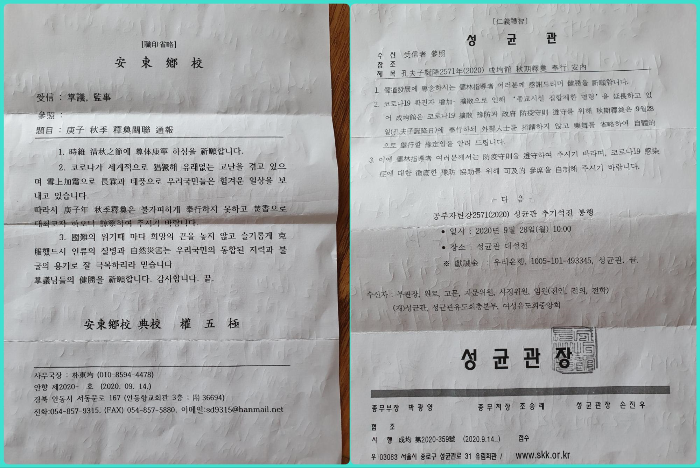 [職印省略]
安東鄕校
受信 : 掌議, 監事
參照 :
題目 : 庚子 秋季 釋奠關聯 通報
1. 時維 淸秋之節에 尊体康寧 하심을 新願합니다.
2. 코로나가 세계적으로 猖獗해 유례없는 고난을 겪고 있으
며 雪上加霜으로 長霖과 태풍으로 우리국민들은 힘겨운 일상을 보
내고 있습니다.
따라서 庚子年 秋季釋奠은 불가피하게 奉行하지 못하고
3. 國難의 위기때 마다 희망의 끈을 놓지 않고 슬기롭게 克
服했드시 인류의 질병과 自然災害는 우리국민의 통합된 지력과 불
굴의 용기로 잘 극복하리라 믿습니다
掌議님들의 健勝을 新願합니다. 감사합니다. 끝.
安東鄕校 典校 權五極
사무국장 : 朴東均 (010-8594-4478)
안향 제2020- 호 (2020. 09. 14.)
경북 안동시 서동문로 167 (안동향교회관 3층 : 用 36694)
전화:054-857-9315. (FAX) 054-857-5880. 이메일:sd9315@hanmail.net
[仁義禮智]
성균관
수신 受信者 參照
참조
제목 孔夫子誕降2571年(2020) 成均館 秋期釋奠 奉行 案內
1. 儒道發展에 獻身하시는 儒林指導者 여러분께 感謝드리며 健勝을 新願합니다.
2. 코로나19 확진자 增加
3. 이에 儒林指導者 여러분께서는 防疫守則을 遵守하여 주시기 바라며, 코로나19 感染
症에 대한 徹底한 豫防 協助를 위해 可及的 參席을 自制해 주시기 바랍니다.
다 음
공부자탄강2571(2020) 성균관 추기석전 봉행
• 일시 : 2020년 9월 28일(월) 10:00
• 장소 : 성균관 대성전
※ 獻誠金 : 우리은행, 1005-101-493345, 성균관, 끝.
수신자 : 부관장, 원로, 고문, 자문위원, 시정위원, 임원(전인, 전의, 전학)
(재)성균관, 성균관유도회총본부, 여성유도회중앙회
성균관장
총무부장 박광영 총무처장 조승래 성균관장 손진우
협조
시행 成均 第2020-359號 (2020.9.14.) 접수
우 03063 서울시 종로구 성균관로 31 유림회관 / www.skk.or.kr